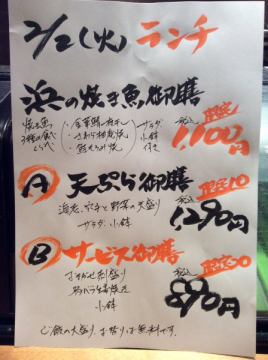 2/2(火) ランチ
浜の焼き魚御膳 限定
焼き魚 ・金華鯖一夜干し サラダ 税込
3種の食べ ・さわら 小鉢 1,100円
くらべ ・鮭 焼 付き
Ⓐ 天ぷら御膳 限定10
海老、穴子と野菜の大盛り 税込
サラダ 小鉢 1,290円
Ⓑ サービス御膳 限定30
おまかせ 盛り 税込
豚バラ生姜焼き 890円
小鉢
ご飯の大盛り、お替りは無料です。